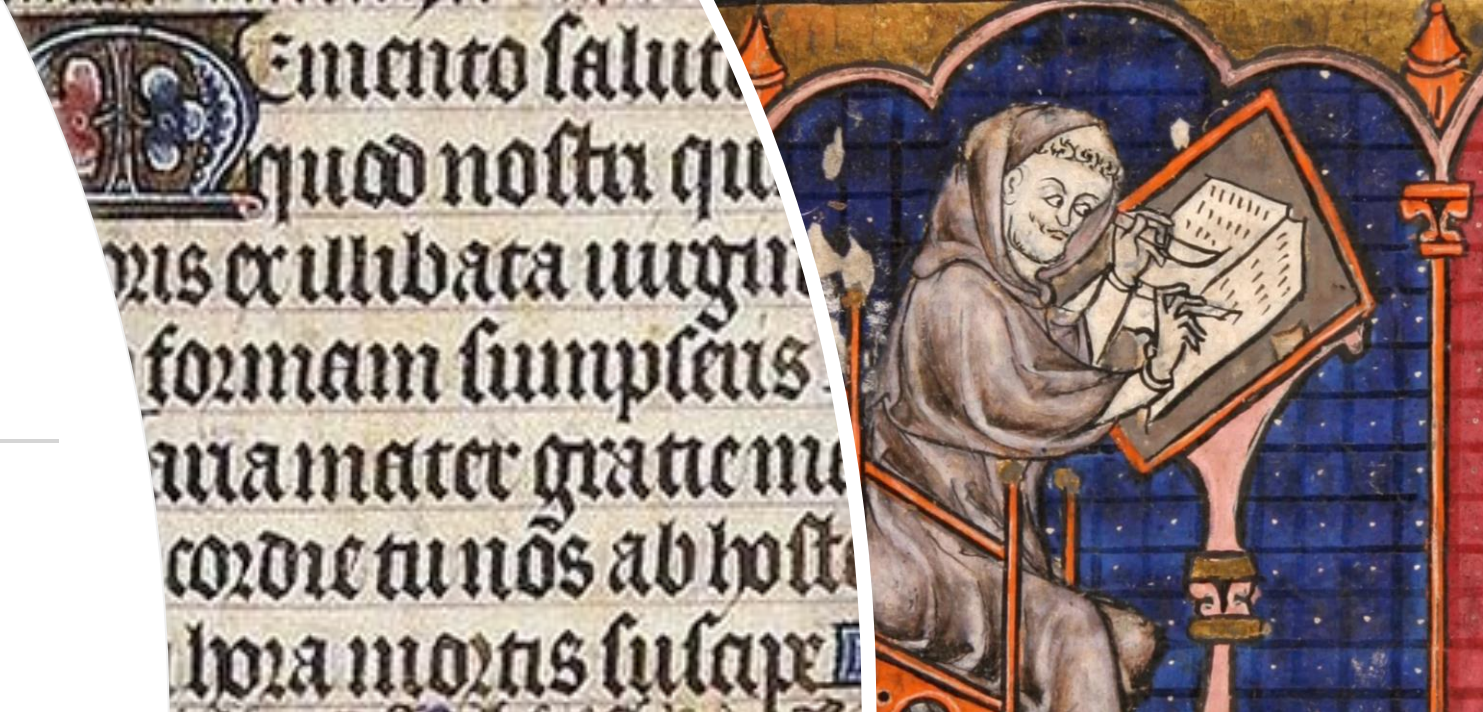 Memento ſalut
quod noſtri qu
oris ex illibata uirgin
formam ſumpſeris
aria mater gratie m
cordie tu nos ab hoſte
hora mortis ſuſcipe